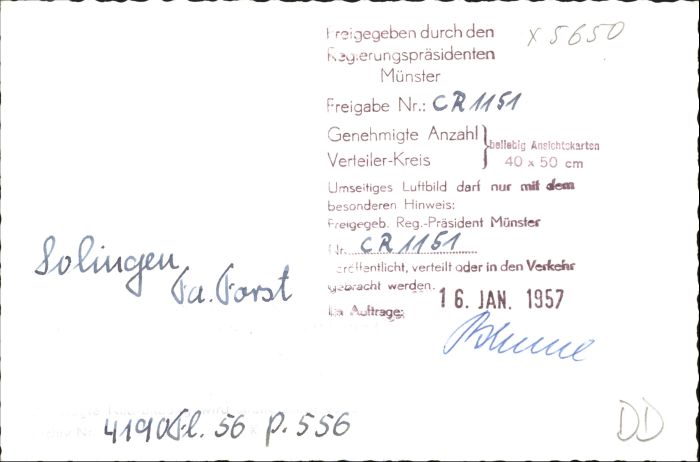 Freigegeben durch den
Regierungspräsidenten
Münster
x 5650
Freigabe Nr.: CR 1151
Genehmigte Anzahl
Verteiler-Kreis
beliebig Ansichtskarten
40 x 50 cm
Umseitiges Luftbild darf nur mit dem
besonderen Hinweis:
Freigegeb. Reg.-Präsident Münster
Nr. CR 1151
veröffentlicht, verteilt oder in den Verkehr
gebracht werden.
16. JAN. 1957
Im Auftrage:
Solingen
Fa. Forst
4190 Fl. 56 p. 556
DD